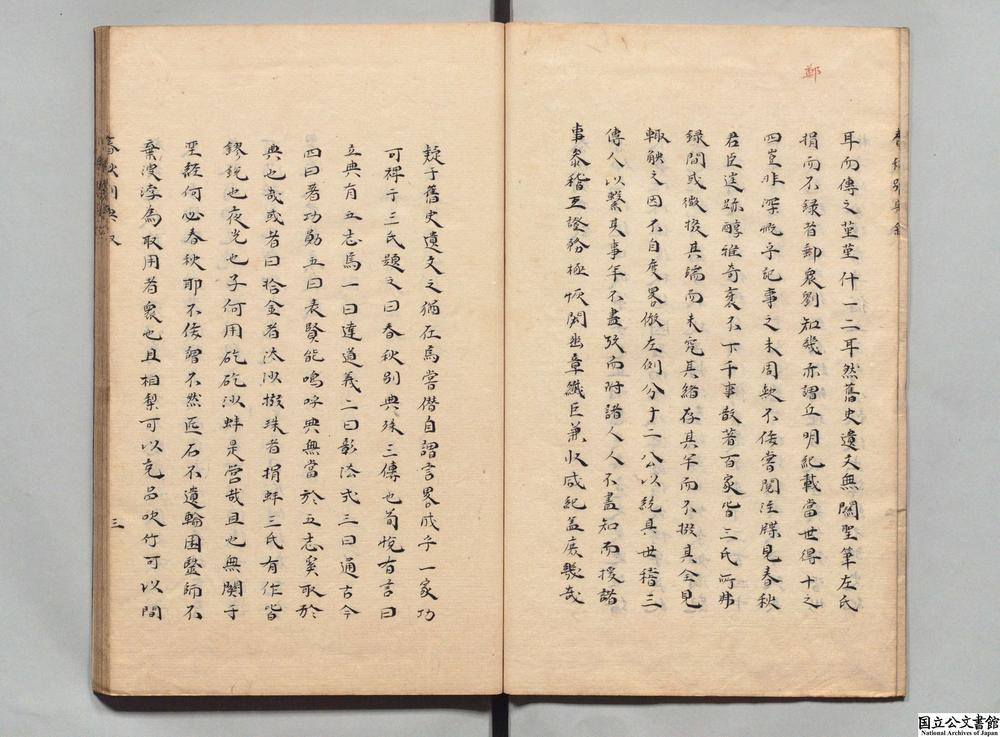 鄭
耳而傳之堇堇什一二耳然舊史遺文無關聖筆左氏
捐而不録者鄭衆劉知幾亦謂丘明紀載當世得十之
四豈非深慨乎記事之未周歟不佞嘗閲往牒見春秋
君臣遺跡醇雅奇袤不下千事散著百家皆三氏所弗
録間或微掇其端而未究其緒存其半而不掇其全見
輙觖之因不自度畧倣左例分十二公以統其世稽三
傳人以繫其事年不盡攷而附諸人人不盡知而援諸
事叅稽互證務極恢闳幽章纖巨兼收咸紀盖庶幾哉
疑于舊史遺文之猶在焉嘗僭自謂言畧成乎一家功
可裨于三氏題之曰春秋别典殊三傳也荀悦有言曰
立典有五志焉一曰達道義二曰彰法式三曰通古今
四曰著功勛五曰表賢能嗚呼典無當於五志奚取於
典也哉或者曰拾金者汰沙掇珠者捐蚌三氏有作皆
鏐銳也夜光也子何用矻矻沙蚌是營哉且也無關乎
聖經何必春秋耶不佞曰不然匠石不遺輪囷醫師不
棄溲渟為取用者衆也且相梨可以克品吹竹可以間
春秋别典叙
三
国立公文書館
National Archives of Japan